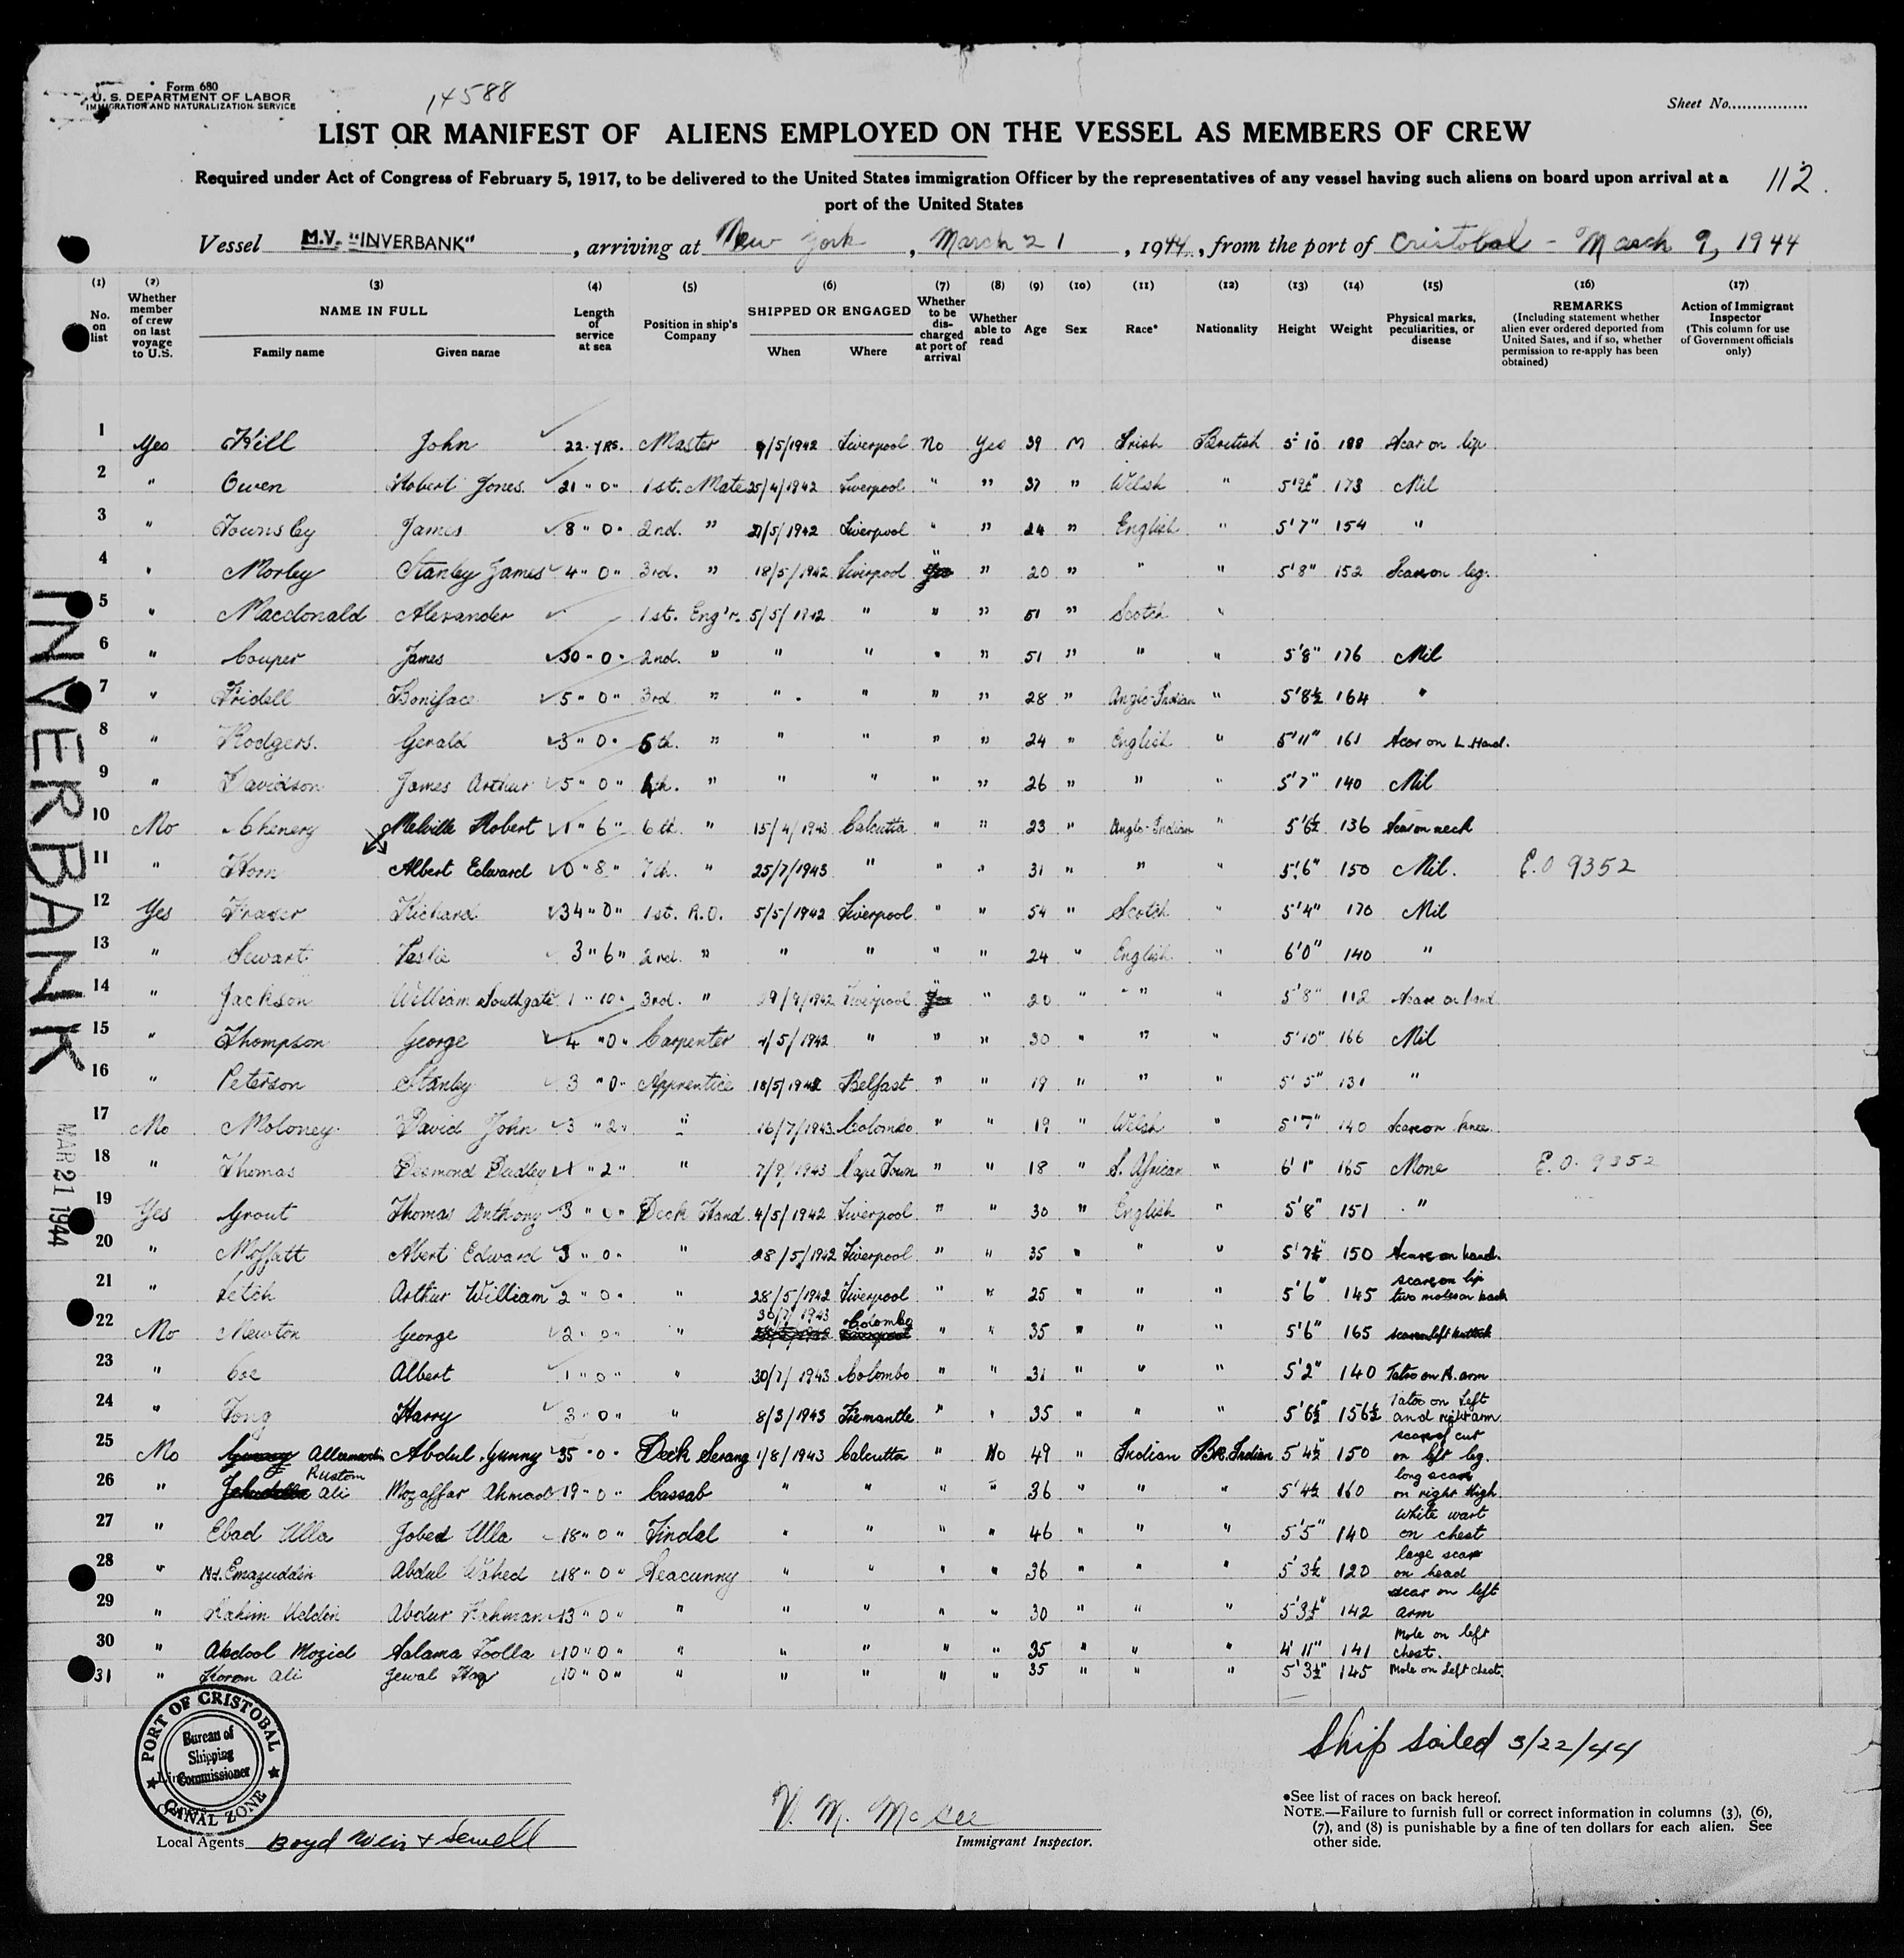 Form 680
U. S. DEPARTMENT OF LABOR
IMMIGRATION AND NATURALIZATION SERVICE
14588
Sheet No.
LIST OR MANIFEST OF ALIENS EMPLOYED ON THE VESSEL AS MEMBERS OF CREW
Required under Act of Congress of February 5, 1917, to be delivered to the United States immigration Officer by the representatives of any vessel having such aliens on board upon arrival at a
port of the United States
112.
Vessel M.V. "INVERBANK", arriving at New York, March 21, 1944, from the port of Cristobal - March 9, 1944
(1) No. on list
(2) Whether member of crew on last voyage to U.S.
(3) NAME IN FULL Family name Given name
(4) Length of service at sea
(5) Position in ship's Company
(6) SHIPPED OR ENGAGED When Where
(7) Whether to be discharged at port of arrival
(8) Whether able to read
(9) Age
(10) Sex
(11) Race*
(12) Nationality
(13) Height
(14) Weight
(15) Physical marks, peculiarities, or disease
(16) REMARKS (Including statement whether alien ever ordered deported from United Sates, and if so, whether permission to re-apply has been obtained)
(17) Action of Immigrant Inspector (This column for use of Government officials only)
1 Yes Hill John 22 YRS. Master 9/5/1942 Liverpool No Yes 39 M Irish British 5' 10 188 Scar on lip
2 " Owen Robert Jones 21 " 0 " 1st. Mate 25/4/1942 Liverpool " " 37 " Welsh " 5'9½" 173 Nil
3 " Townsley James 8 " 0 " 2nd. " 21/5/1942 Liverpool " " 24 " English " 5'7" 154 "
4 " Morley Stanley James 4 " 0 " 3rd. " 18/5/1942 Liverpool " " 20 " " " 5'8" 152 Scar on leg.
5 " Macdonald Alexander 1st. Eng'r. 5/5/1942 " " " 51 " Scotch "
6 " Couper James 30 " 0 " 2nd. " " " " " 51 " " " 5'8" 176 Nil
7 " Fridell Boniface 5 " 0 " 3rd " " " " " 28 " Anglo-Indian " 5'8½ 164 "
8 " Rodgers. Gerald 3 " 0 " 5th. " " " " " 24 " English " 5'11" 161 Scar on L. Hand.
9 " Davidson James Arthur 5 " 0 " 4th. " " " " " 26 " " " 5'7" 140 Nil
10 No Chenery Melville Robert 1 " 6 " 6th " 15/4/1943 Calcutta " " 23 " Anglo-Indian " 5'6½ 136 Scar on neck
11 " Horn Albert Edward 0 " 8 " 7th. " 25/7/1943 " " " 31 " " " 5'6" 150 Nil. E.O 9352
12 Yes Fraser Richard 34 " 0 " 1st. R.O. 5/5/1942 Liverpool " " 54 " Scotch " 5'4" 170 Nil
13 " Sewart Leslie 3 " 6 " 2nd. " " " " " 24 " English " 6'0" 140 "
14 " Jackson William Southgate 1 " 10 " 3rd. " 29/9/1942 Liverpool " " 20 " " " 5'8" 112 Scar on hand
15 " Thompson George 4 " 0 " Carpenter 4/5/1942 " " " 30 " " " 5'10" 166 Nil
16 " Peterson Stanley 3 " 0 " Apprentice 18/5/1942 Belfast " " 19 " " " 5' 5" 131 "
17 No Moloney David John 3 " 2 " " 16/7/1943 Colombo " " 19 " Welsh " 5'7" 140 Scar on knee
18 " Thomas Desmond Dudley 1 " 2 " " 7/9/1943 Cape Town " " 18 " S. African " 6'1" 165 None E.O. 9352
19 Yes Grout Thomas Anthony 3 " 0 " Deck Hand 4/5/1942 Liverpool " " 30 " English " 5'8" 151 "
20 " Moffatt Abert Edward 3 " 0 " " 28/5/1942 Liverpool " " 35 " " " 5'7½" 150 Scar on hand.
21 " Letch Arthur William 2 " 0 " " 28/5/1942 Liverpool " " 25 " " " 5'6" 145 scar on lip two moles on back
22 No Newton George 2 " 0 " " 30/7/1943 Colombo " " 35 " " " 5'6" 165 scar on left buttock
23 " Coe Albert 1 " 0 " " 30/7/1943 Colombo " " 31 " " " 5'2" 140 Tatoo on R. arm
24 " Tong Harry 3 " 0 " " 8/3/1943 Fremantle " " 35 " " " 5'6½" 156½ Tatoo on Left and right arm
25 No Abdul Gunny 35 " 0 " Deck Serang 1/8/1943 Calcutta " No 49 " Indian Br. Indian 5'4½" 150 scar of cut on left leg.
26 " Rustom Ali Mozaffar Ahmad 19 " 0 " Cassab " " " " 36 " " " 5'4½ 160 long scar on right thigh
27 " Ebad Ulla Jobed Ulla 18 " 0 " Tindal " " " " 46 " " " 5'5" 140 White wart on chest
28 " Md. Emazuddin Abdul Wahed 18 " 0 " Seacunny " " " " 36 " " " 5'3½ 120 large scar on head
29 " Hakim Uddin Abdur Rahman 13 " 0 " " " " " " 30 " " " 5'3½" 142 scar on left arm
30 " Abdool Mozid Salama Toolla 10 " 0 " " " " " " 35 " " " 4' 11" 141 Mole on left chest.
31 " Korom Ali Jewal Haq 10 " 0 " " " " " " 35 " " " 5'3½" 145 Mole on Left chest.
INVERBANK
MAR 21 1944
PORT OF CRISTOBAL
Bureau of Shipping Commissioner
CANAL ZONE
Ship Sailed 3/22/44
Local Agents Boyd Weir & Sewell
V. M. McGee
Immigrant Inspector.
*See list of races on back hereof.
NOTE.—Failure to furnish full or correct information in columns (3), (6),
(7), and (8) is punishable by a fine of ten dollars for each alien. See
other side.